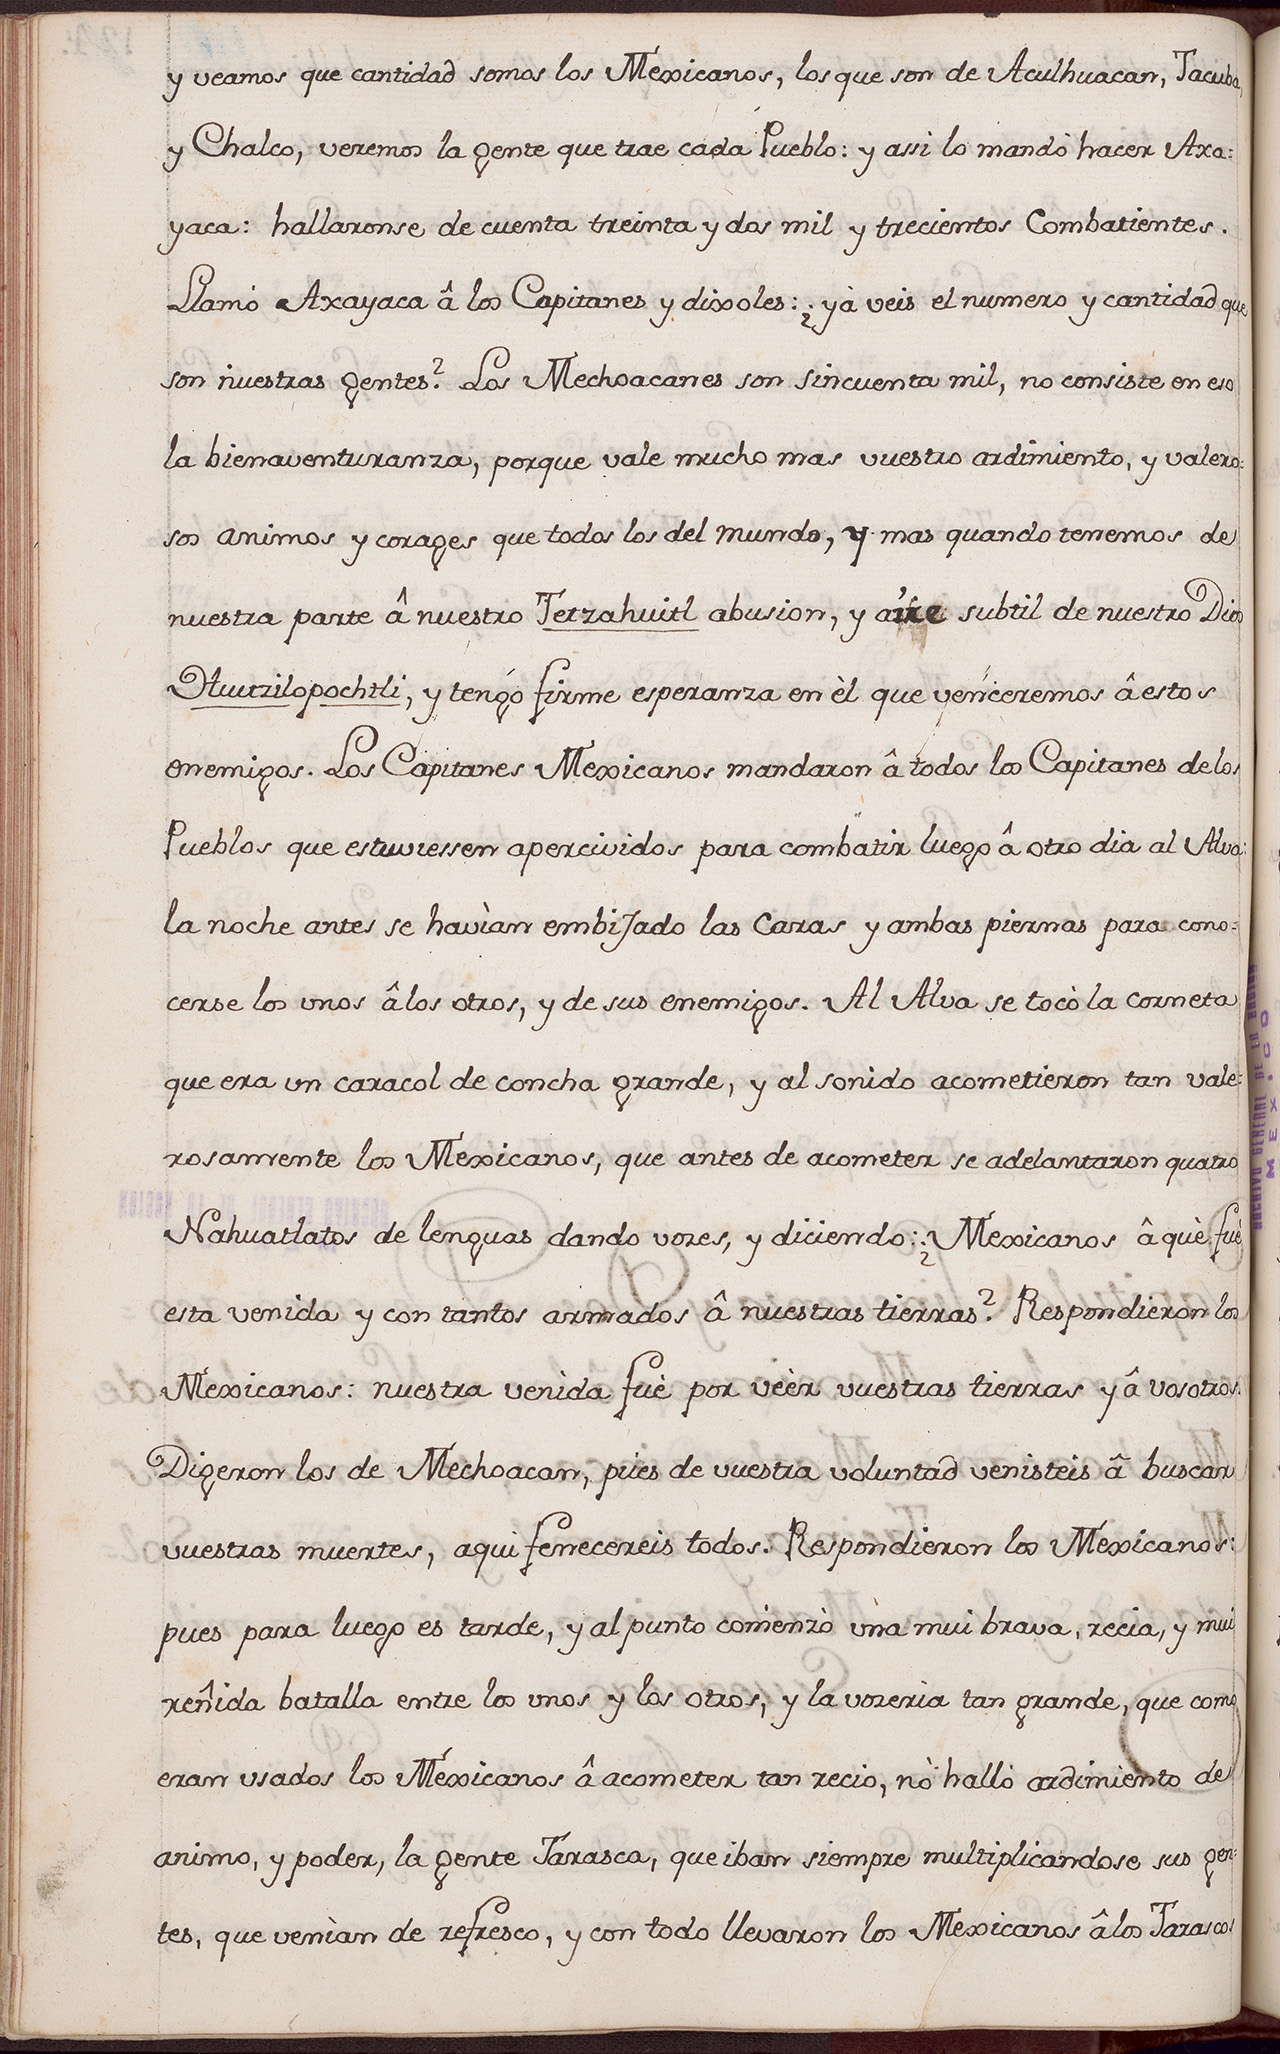 y veamos que cantidad somos los Mexicanos, los que son de Aculhuacan, Tacuba,
y Chalco, veremos la gente que trae cada Pueblo: y assi lo mandó hacer Axa:
yaca: hallaronse de cuenta treinta y dos mil y trecientos Combatientes.
Llamó Axayaca â los Capitanes y dixoles: ¿yà veis el numero y cantidad que
son nuestras gentes? Los Mechoacanes son sincuenta mil, no consiste en eso
la bienaventuranza, porque vale mucho mas vuestro ardimiento, y valero:
sos animos y corages que todos los del mundo, y mas quando tenemos de
nuestra parte â nuestro Tetzahuitl abusion, y aire subtil de nuestro Dios
Huitzilopochtli, y tengo firme esperanza en èl que venceremos â estos
enemigos. Los Capitanes Mexicanos mandaron â todos los Capitanes de los
Pueblos que estuviessen apercividos para combatir luego â otro dia al Alva:
la noche antes se havìan embijado las caras y ambas piernas para cono:
cerse los unos â los otros, y de sus enemigos. Al Alva se tocò la corneta
que era un caracol de concha grande, y al sonido acometieron tan vale:
rosamente los Mexicanos, que antes de acometer se adelantaron quatro
Nahuatlatos de lenguas dando vozes, y diciendo: ¿Mexicanos â què fuè
esta venida y con tantos armados â nuestras tierras? Respondieron los
Mexicanos: nuestra venida fuè por veèr vuestras tierras y â vosotros.
Digeron los de Mechoacan, pues de vuestra voluntad venisteis â buscar
vuestras muertes, aqui fenecereis todos. Respondieron los Mexicanos:
pues para luego es tarde, y al punto comenzò una mui brava, recia, y mui
reñida batalla entre los unos y los otros, y la vozeria tan grande, que como
eran usados los Mexicanos â acometer tan recio, nò halló ardimiento de
animo, y poder, la gente Tarasca, que iban siempre multiplicandose sus gen:
tes, que venìan de refresco, y con todo llevaron los Mexicanos â los Tarascos
ARCHIVO GENERAL DE LA NACION
MEXICO